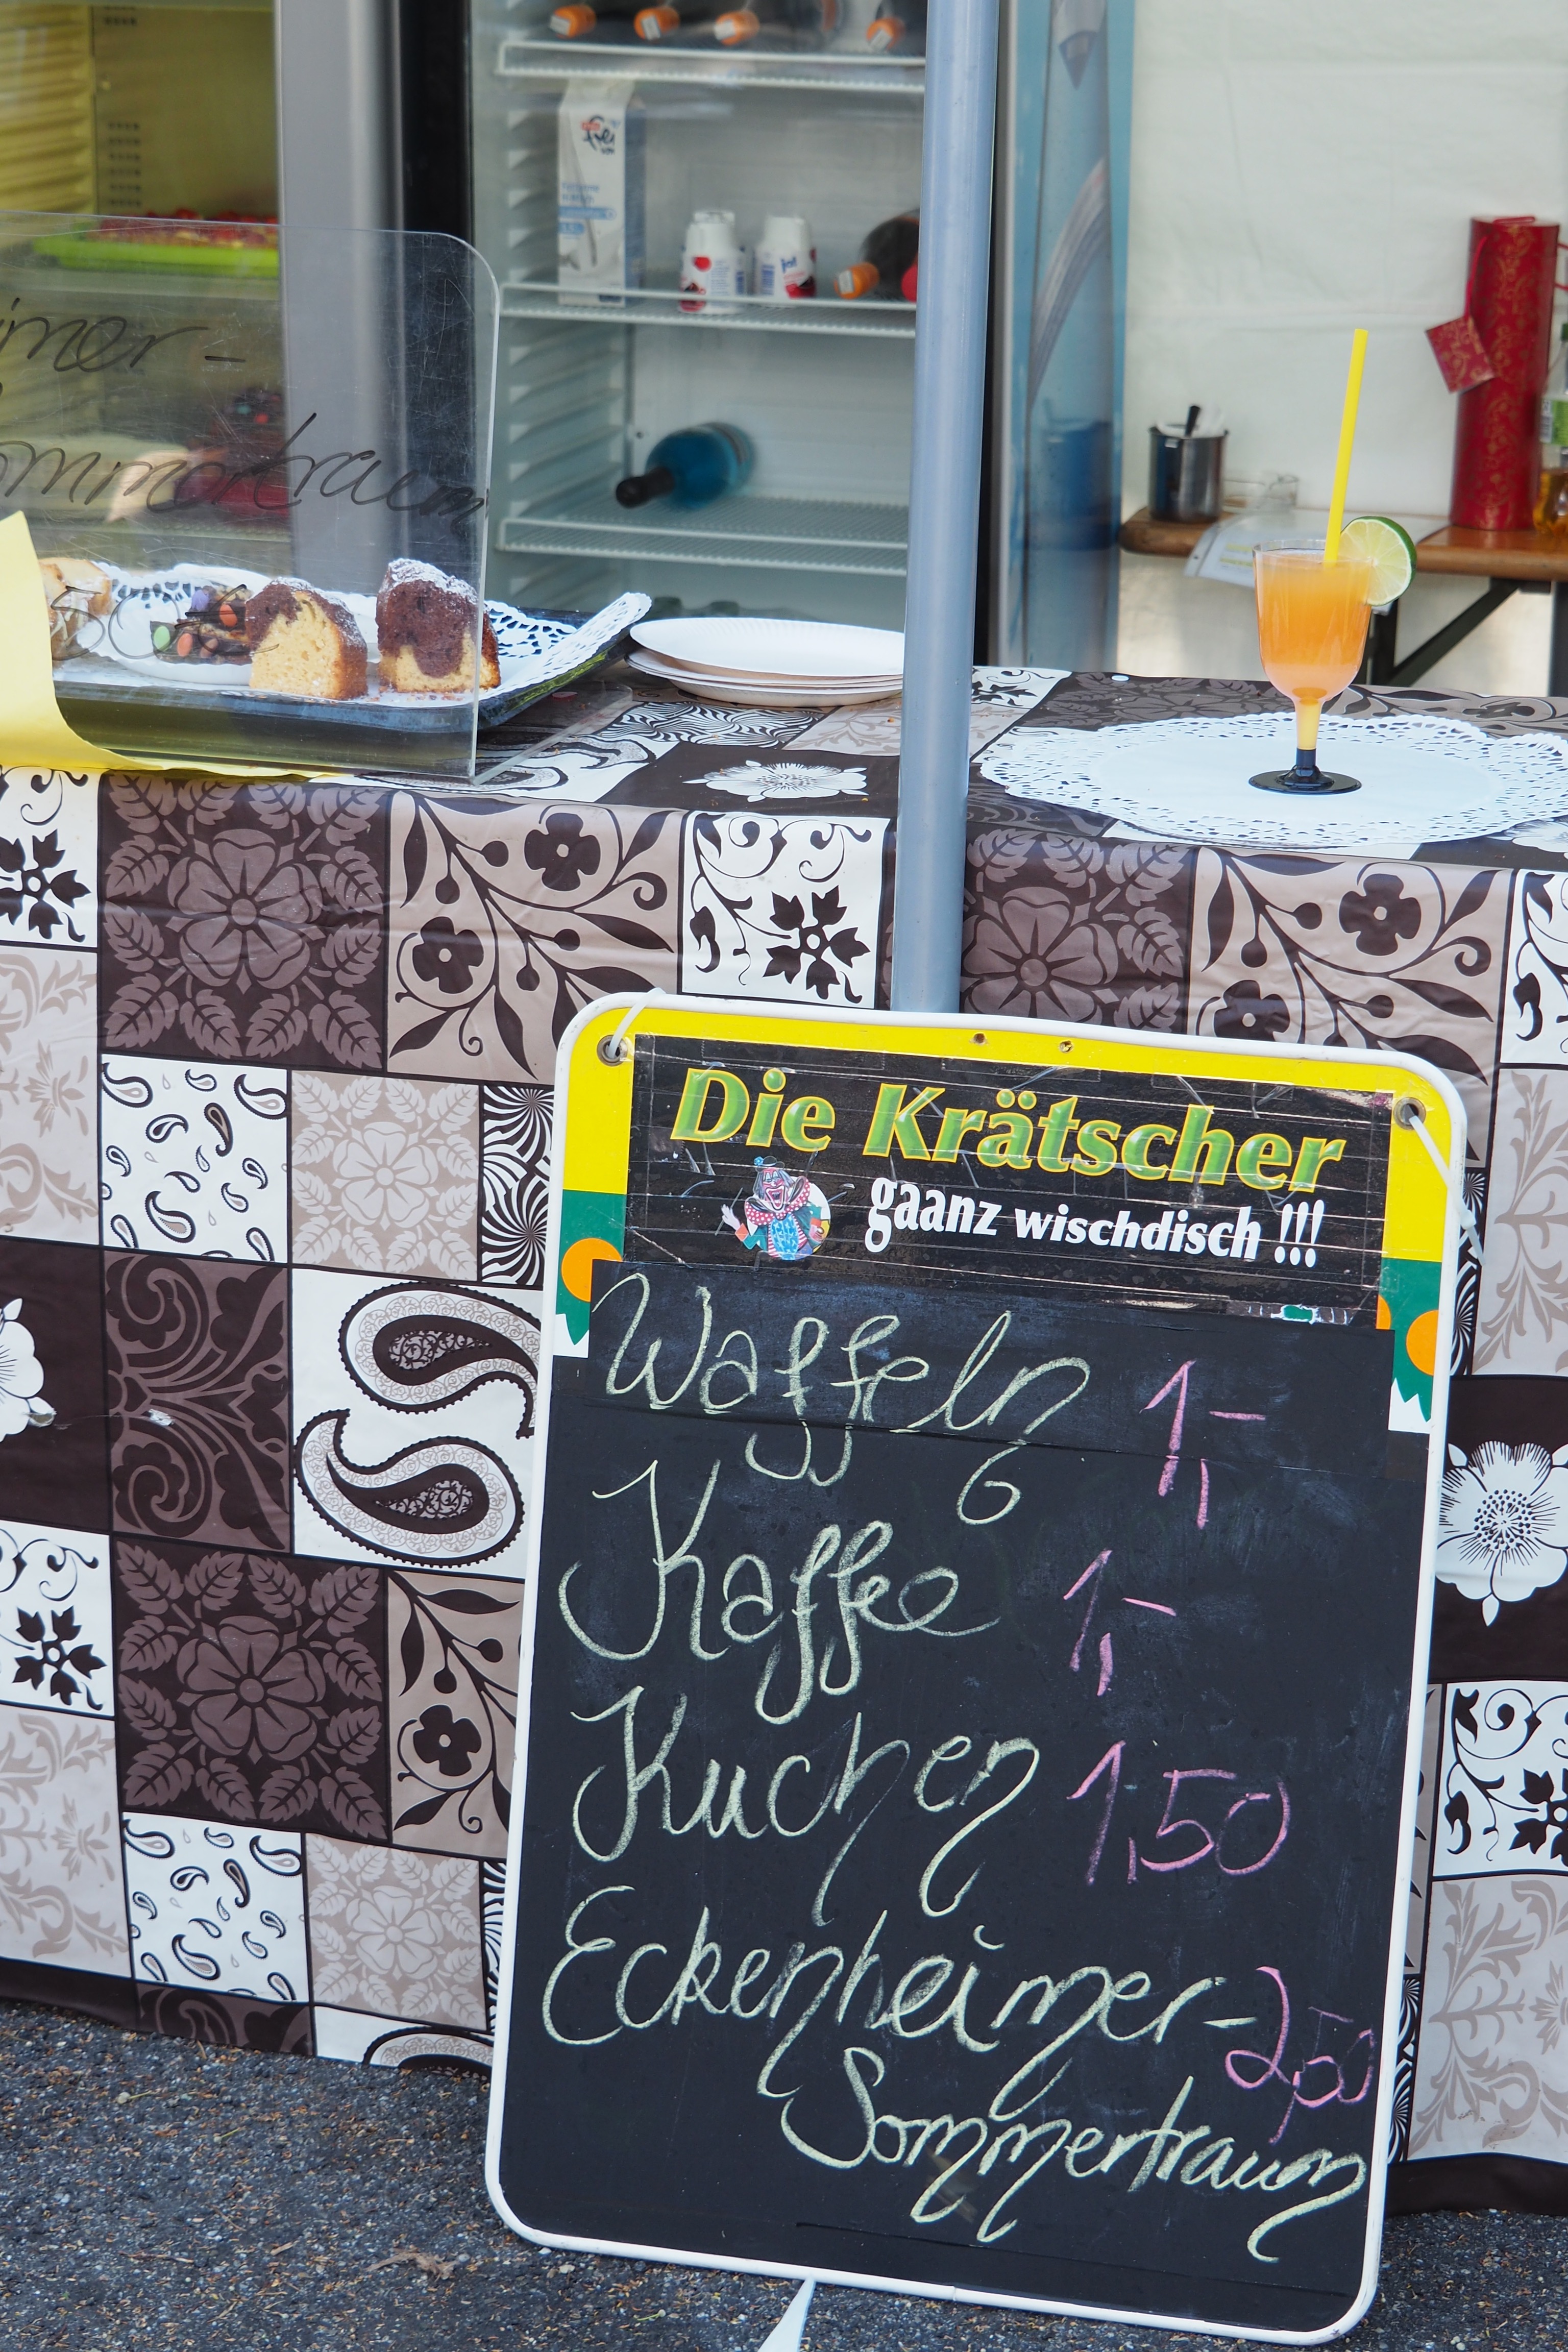 frei
ja!
imer-
ommertraum
50€
Die Krätscher
gaanz wischdisch !!!
Waffeln 1,-
Kaffee 1,-
Kuchen 1,50
Eckenheimer- 2,50
Sommertraum